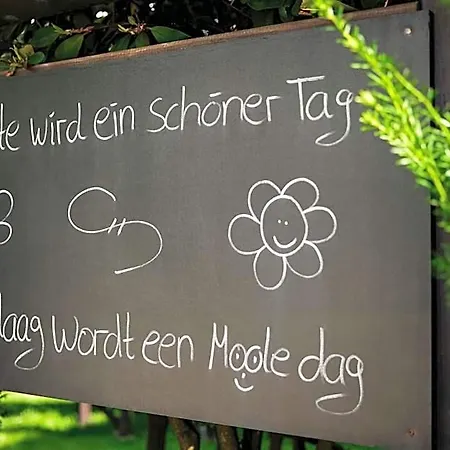 te wird ein schöner Tag
laag wordt een Moole dag